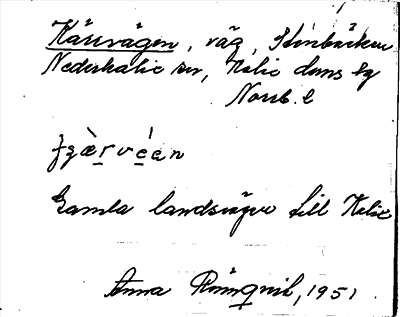 Kärrvägen, väg, Stenbäcken
Nederkalix sn, Kalix
Norrb. l
Gamla landsvägen till Kalix
Anna Rönnqvist, 1951